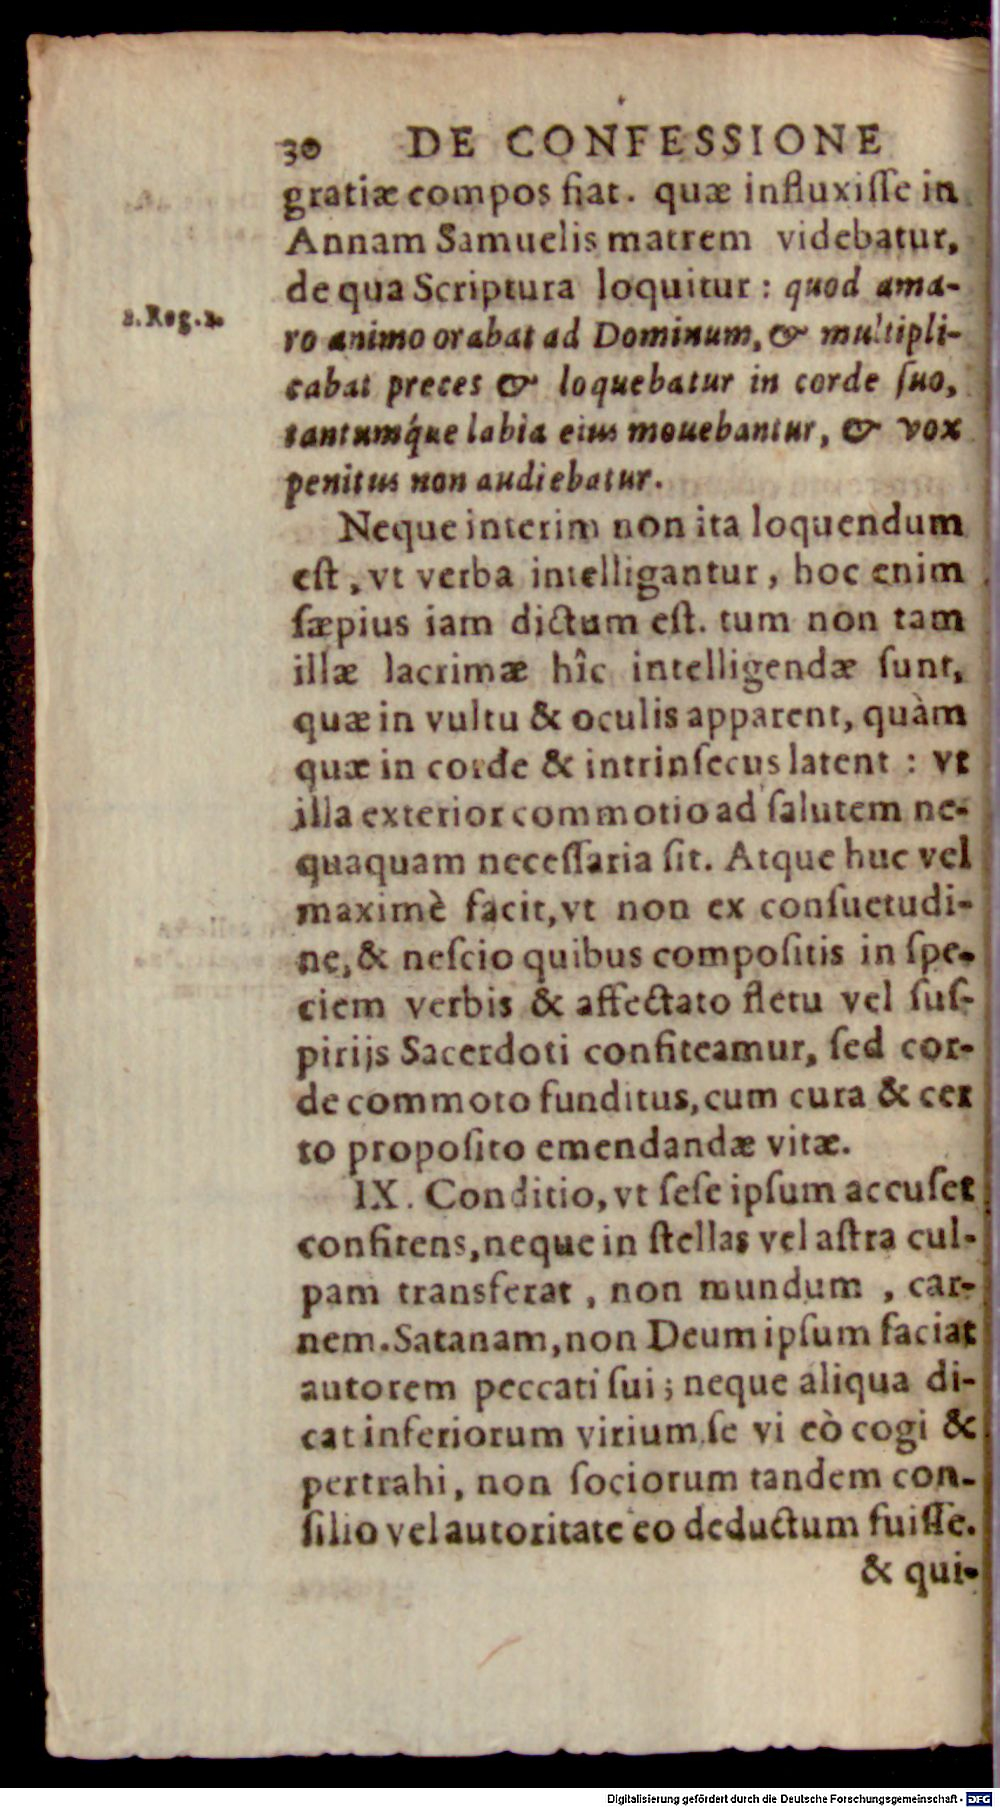 30 DE CONFESSIONE
gratiæ compos fiat. quæ influxiſſe in
Annam Samuelis matrem videbatur,
de qua Scriptura loquitur: quod ama-
ro animo orabat ad Dominum, & multipli-
cabat preces & loquebatur in corde ſuo,
tantumq́ue labia eius mouebantur, & vox
penitus non audiebatur.
Neque interim non ita loquendum
eſt, vt verba intelligantur, hoc enim
ſæpius iam dictum eſt. tum non tam
illæ lacrimæ hîc intelligendæ ſunt,
quæ in vultu & oculis apparent, quàm
quæ in corde & intrinſecus latent: vt
illa exterior commotio ad ſalutem ne-
quaquam neceſſaria ſit. Atque huc vel
maximè facit, vt non ex conſuetudi-
ne, & neſcio quibus compoſitis in ſpe-
ciem verbis & affectato fletu vel ſuſ-
pirijs Sacerdoti confiteamur, ſed cor-
de commoto funditus, cum cura & cer
to propoſito emendandæ vitæ.
IX. Conditio, vt ſeſe ipſum accuſet
confitens, neque in ſtellas vel aſtra cul-
pam transferat, non mundum, car-
nem. Satanam, non Deum ipſum faciat
autorem peccati ſui; neque aliqua di-
cat inferiorum virium ſe vi eò cogi &
pertrahi, non ſociorum tandem con-
ſilio vel autoritate eo deductum fuiſſe.
& qui-
Reg.
Digitalisierung gefördert durch die Deutsche Forschungsgemeinschaft - DFG